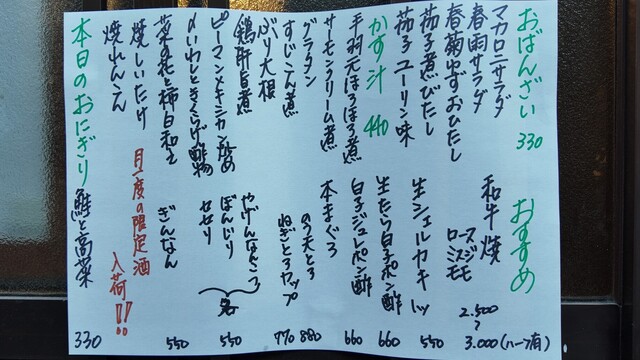 おばんざい 330
マカロニサラダ
春雨サラダ
春菊ゆずおひたし
茄子煮びたし
茄子ユーリン味
かす汁 440
手羽元ほろほろ煮
サーモンクリーム煮
グラタン
すじこん煮
ぶり大根
鶏肝旨煮
ピーマンとチキン炒め
めいわしときくらげ酢物
菜の花と柿白和え
焼しいたけ
焼れんこん
本日のおにぎり 鮭と高菜 330
おすすめ
和牛焼
スジモ
ロシズモ
2.500
〜
3.000(ハーフ有)
生シェルカキ 1ヶ 550
生たら白子ポン酢 660
白子ジュレポン酢 660
本まぐろ
の天とろ 880
ねぎとろアップ 770
やげんなんこつ
ぼんじり
セセリ
各 550
ぎんなん 550
月一度の限定酒
入荷!!